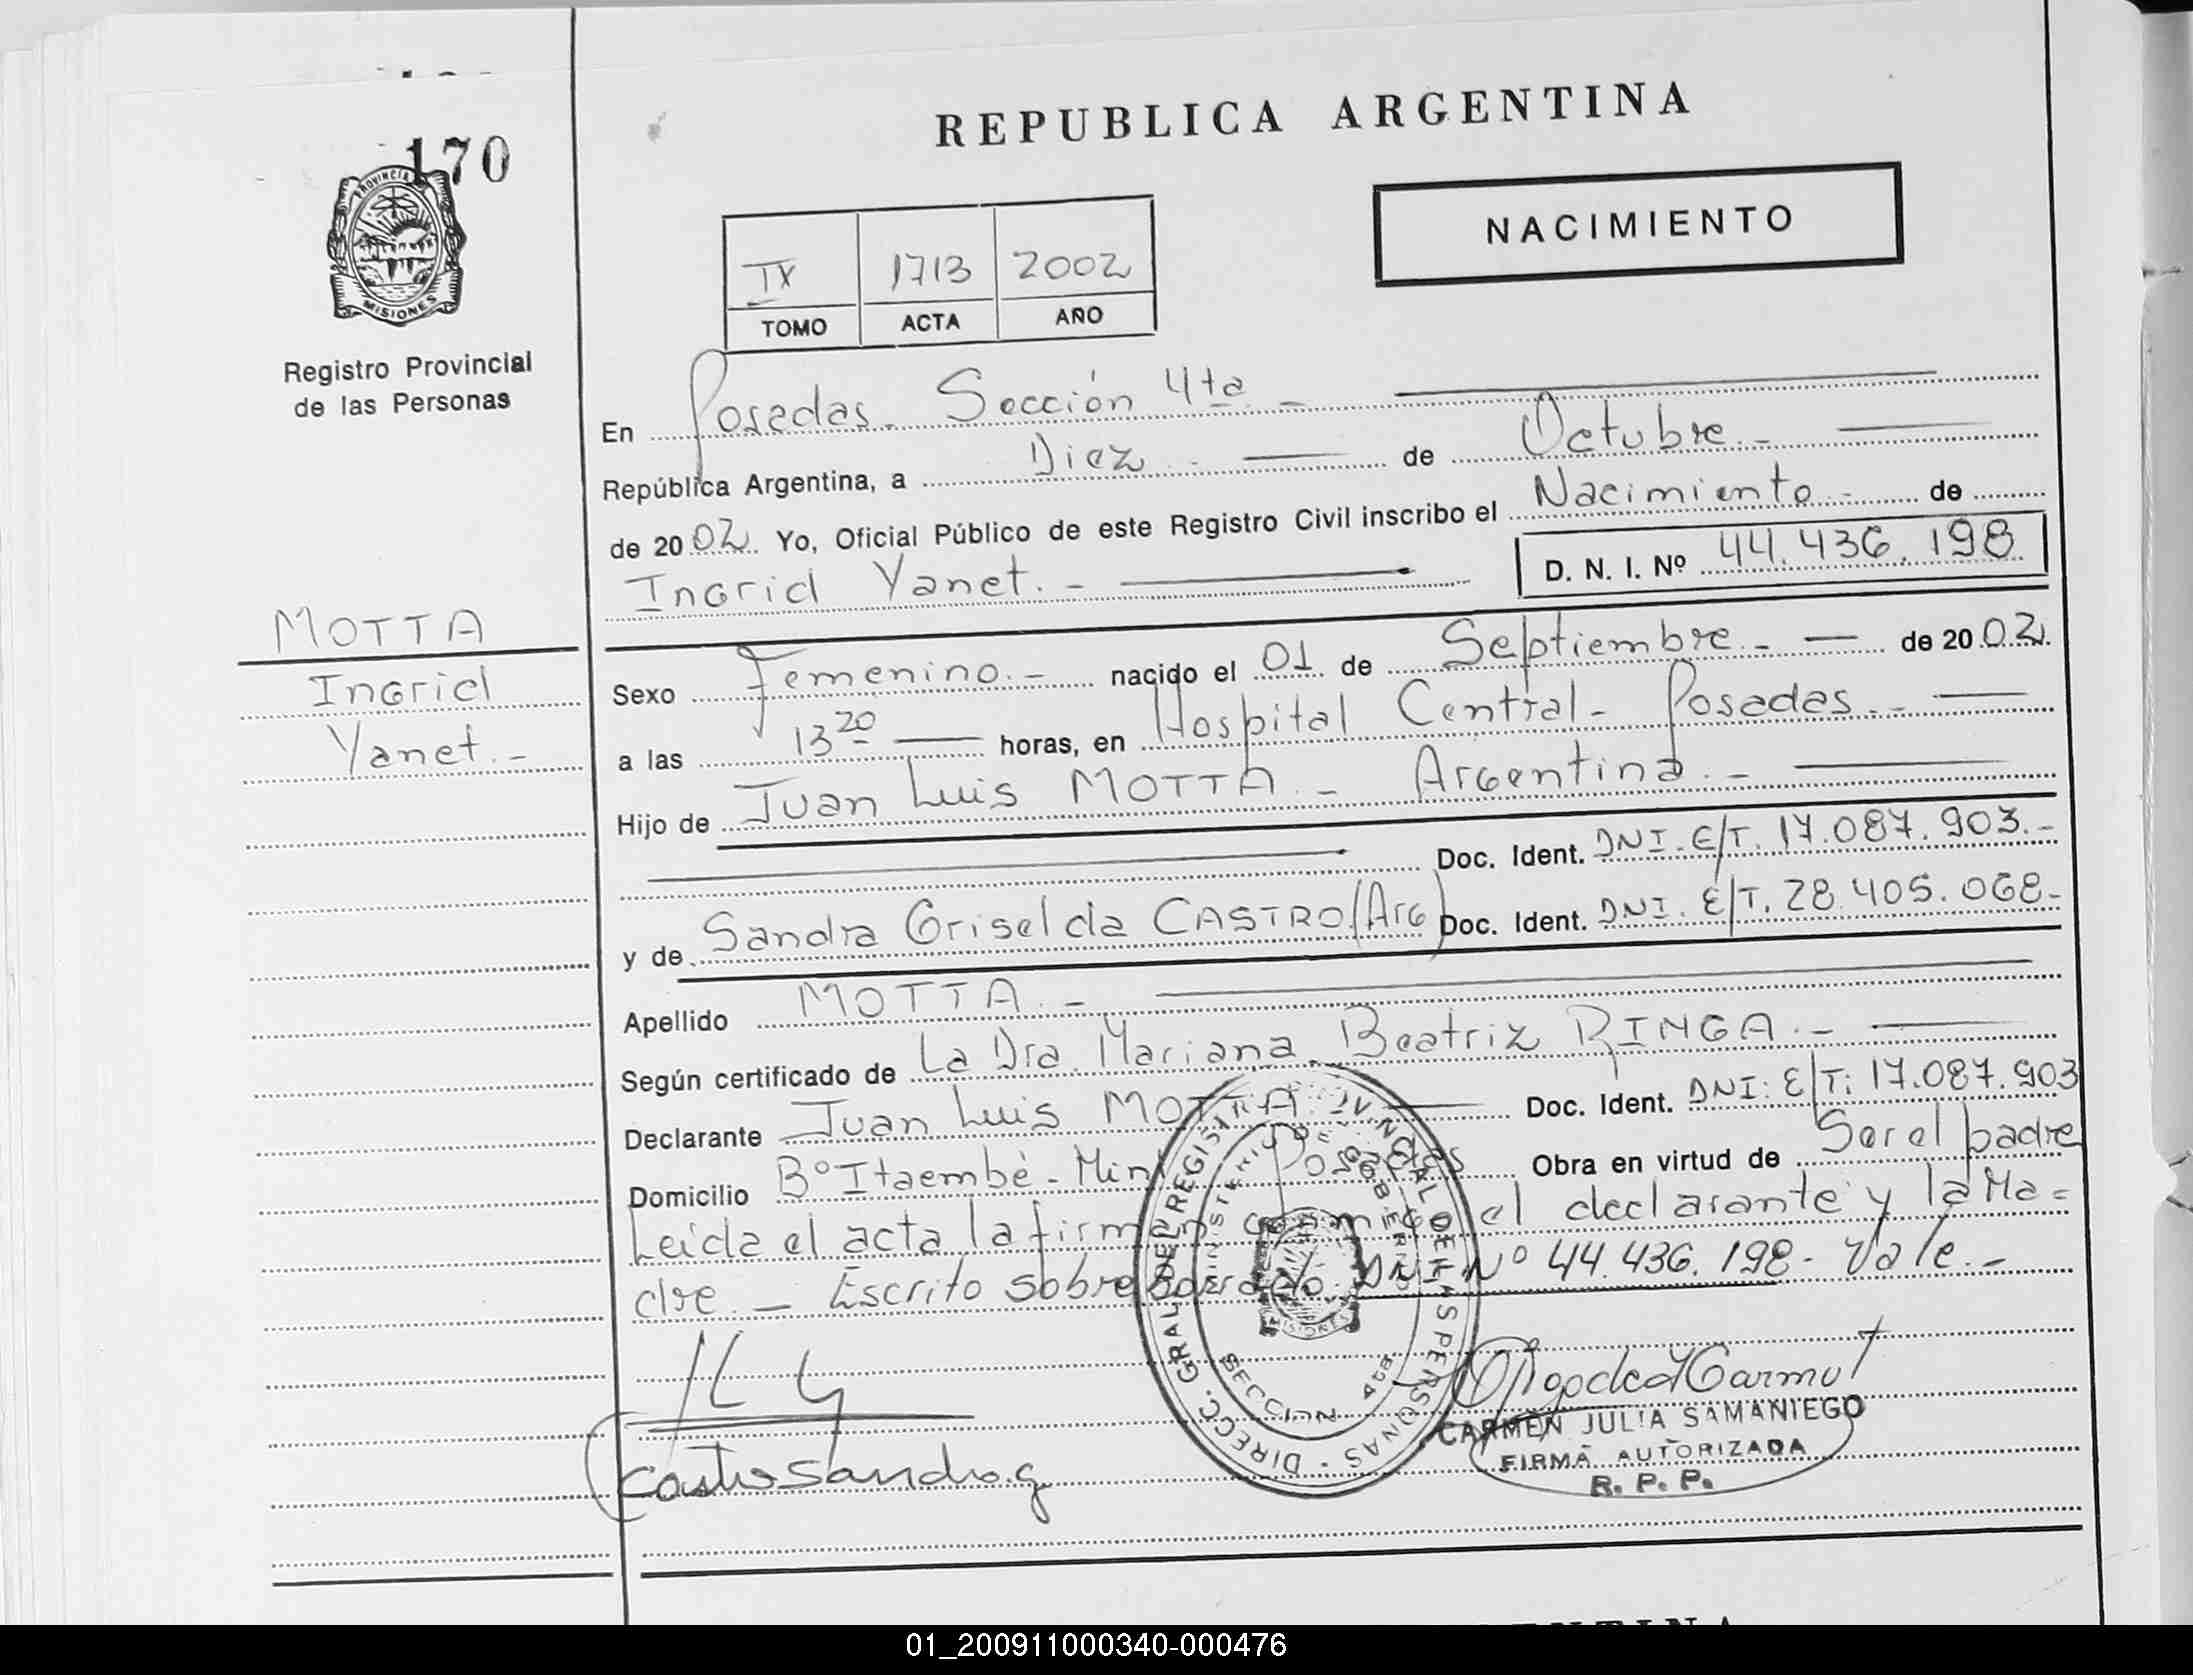 170
PROVINCIA DE
MISIONES
Registro Provincial
de las Personas
MOTTA
Ingrid
Yanet.-
REPUBLICA ARGENTINA
NACIMIENTO
IX 1713 2002
TOMO ACTA AÑO
En Posadas. Sección 4ta. -
República Argentina, a Diez.- de Octubre.-
de 2002. Yo, Oficial Público de este Registro Civil inscribo el Nacimiento.- de
Ingrid Yanet.- D. N. I. Nº 44.436.198.
Sexo Femenino.- nacido el 01 de Septiembre.- de 2002.
a las 13 20 horas, en Hospital Central- Posadas.-
Hijo de Juan Luis MOTTA.- Argentina.-
Doc. Ident. DNI. E/T. 17.087.903.-
y de Sandra Griselda CASTRO (Arg) Doc. Ident. DNI. E/T. 28.405.068-
Apellido MOTTA.-
Según certificado de La Dra. Mariana Beatriz RINGA.-
Declarante Juan Luis MOTTA.- Doc. Ident. DNI: E/T: 17.087.903
Domicilio Bº Itaembé- Miní Posadas Obra en virtud de Ser el padre
Leída el acta la firman conmigo el declarante y la Ma=
dre.- Escrito sobre borrado. DNI Nº 44.436.198- Vale.-
DIRECC. GRAL DEL REGISTRO PROVINCIAL DE LAS PERSONAS
MINISTERIO DE GOBIERNO
MISIONES
SECCION 4ta
Castro Sandra g
CARMEN JULIA SAMANIEGO
FIRMA AUTORIZADA
R. P. P.
01_200911000340-000476